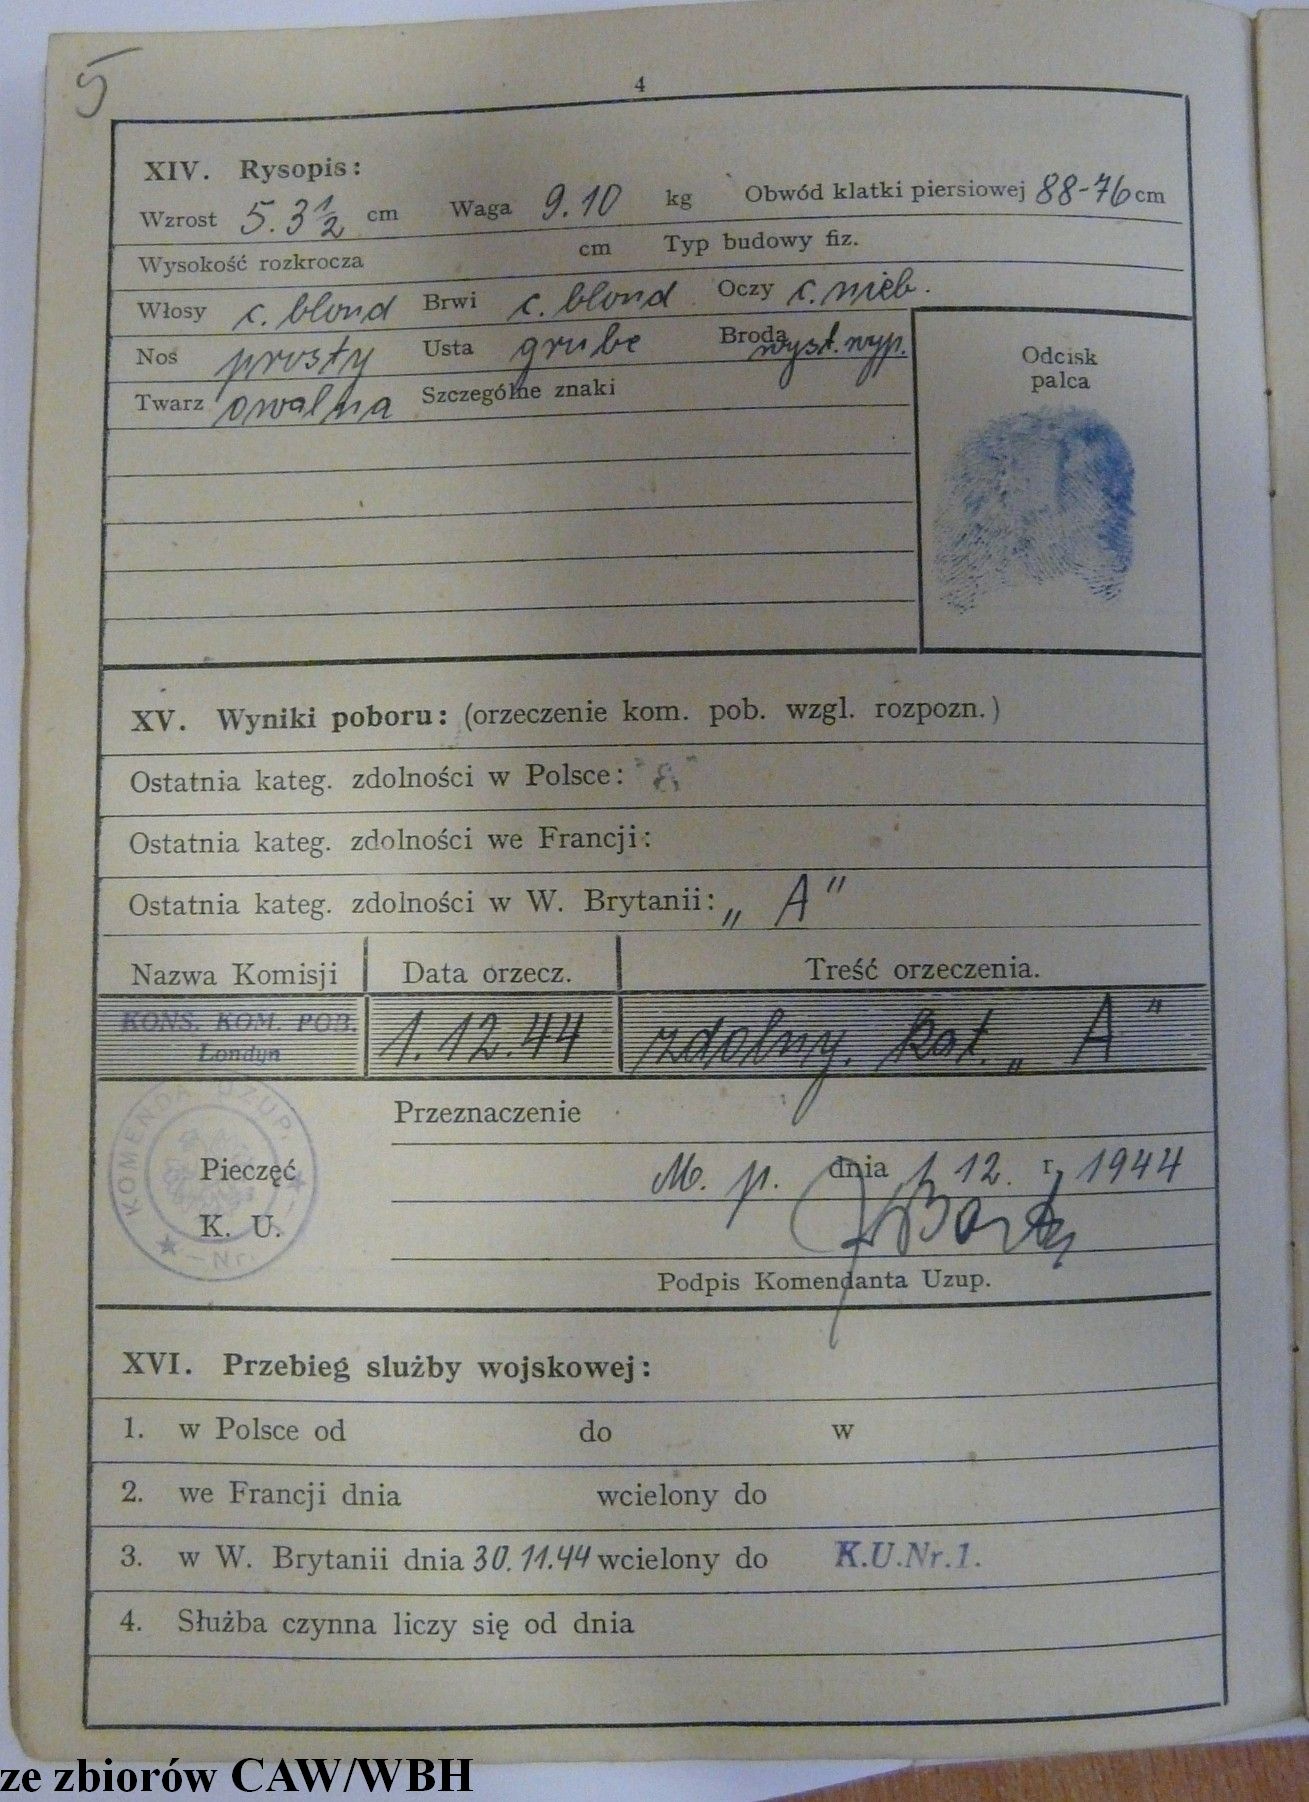 5
4
XIV. Rysopis:
Wzrost 5.3½ cm Waga 9.10 kg Obwód klatki piersiowej 88-76 cm
Wysokość rozkrocza cm Typ budowy fiz.
Włosy c. blond Brwi c. blond Oczy c. nieb.
Nos prosty Usta grube Broda wyst. wyp.
Twarz owalna Szczególne znaki
Odcisk
palca
XV. Wyniki poboru: (orzeczenie kom. pob. wzgl. rozpozn.)
Ostatnia kateg. zdolności w Polsce:
Ostatnia kateg. zdolności we Francji:
Ostatnia kateg. zdolności w W. Brytanii: „A"
Nazwa Komisji Data orzecz. Treść orzeczenia.
KONS. KOM. POB. 1.12.44 zdolny. kat. „A"
Londyn
KOMENDA UZUP. Nr. 1
Przeznaczenie
Pieczęć M. p. dnia 1 12. r. 1944
K. U.
Podpis Komendanta Uzup.
XVI. Przebieg służby wojskowej:
1. w Polsce od do w
2. we Francji dnia wcielony do
3. w W. Brytanii dnia 30.11.44 wcielony do K.U.Nr.1.
4. Służba czynna liczy się od dnia
ze zbiorów CAW/WBH